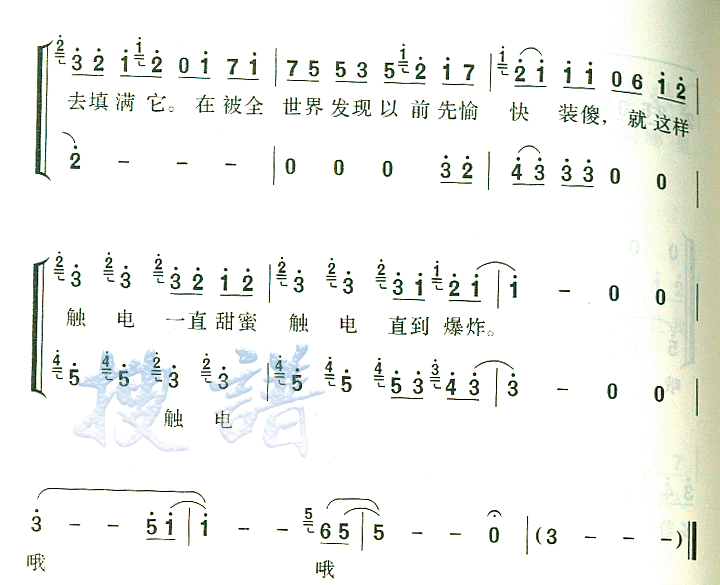 3 2 1 2 0 1 7 1 | 7 5 5 3 5 2 1 7 | 2 1 1 1 0 6 1 2
去填满它。在被全 世界发现以前先愉 快 装傻，就这样
2 - - - | 0 0 0 3 2 | 4 3 3 3 0 0 |
3 3 3 2 1 2 | 3 3 3 1 2 1 | 1 - 0 0 |
触 电 一直甜蜜 触 电 直到爆炸。
5 5 3 3 | 5 5 5 3 4 3 | 3 - 0 0 |
触 电
搜谱
3 - - 5 1 | 1 - - 6 5 | 5 - - 0 | (3 - - -)
哦 哦